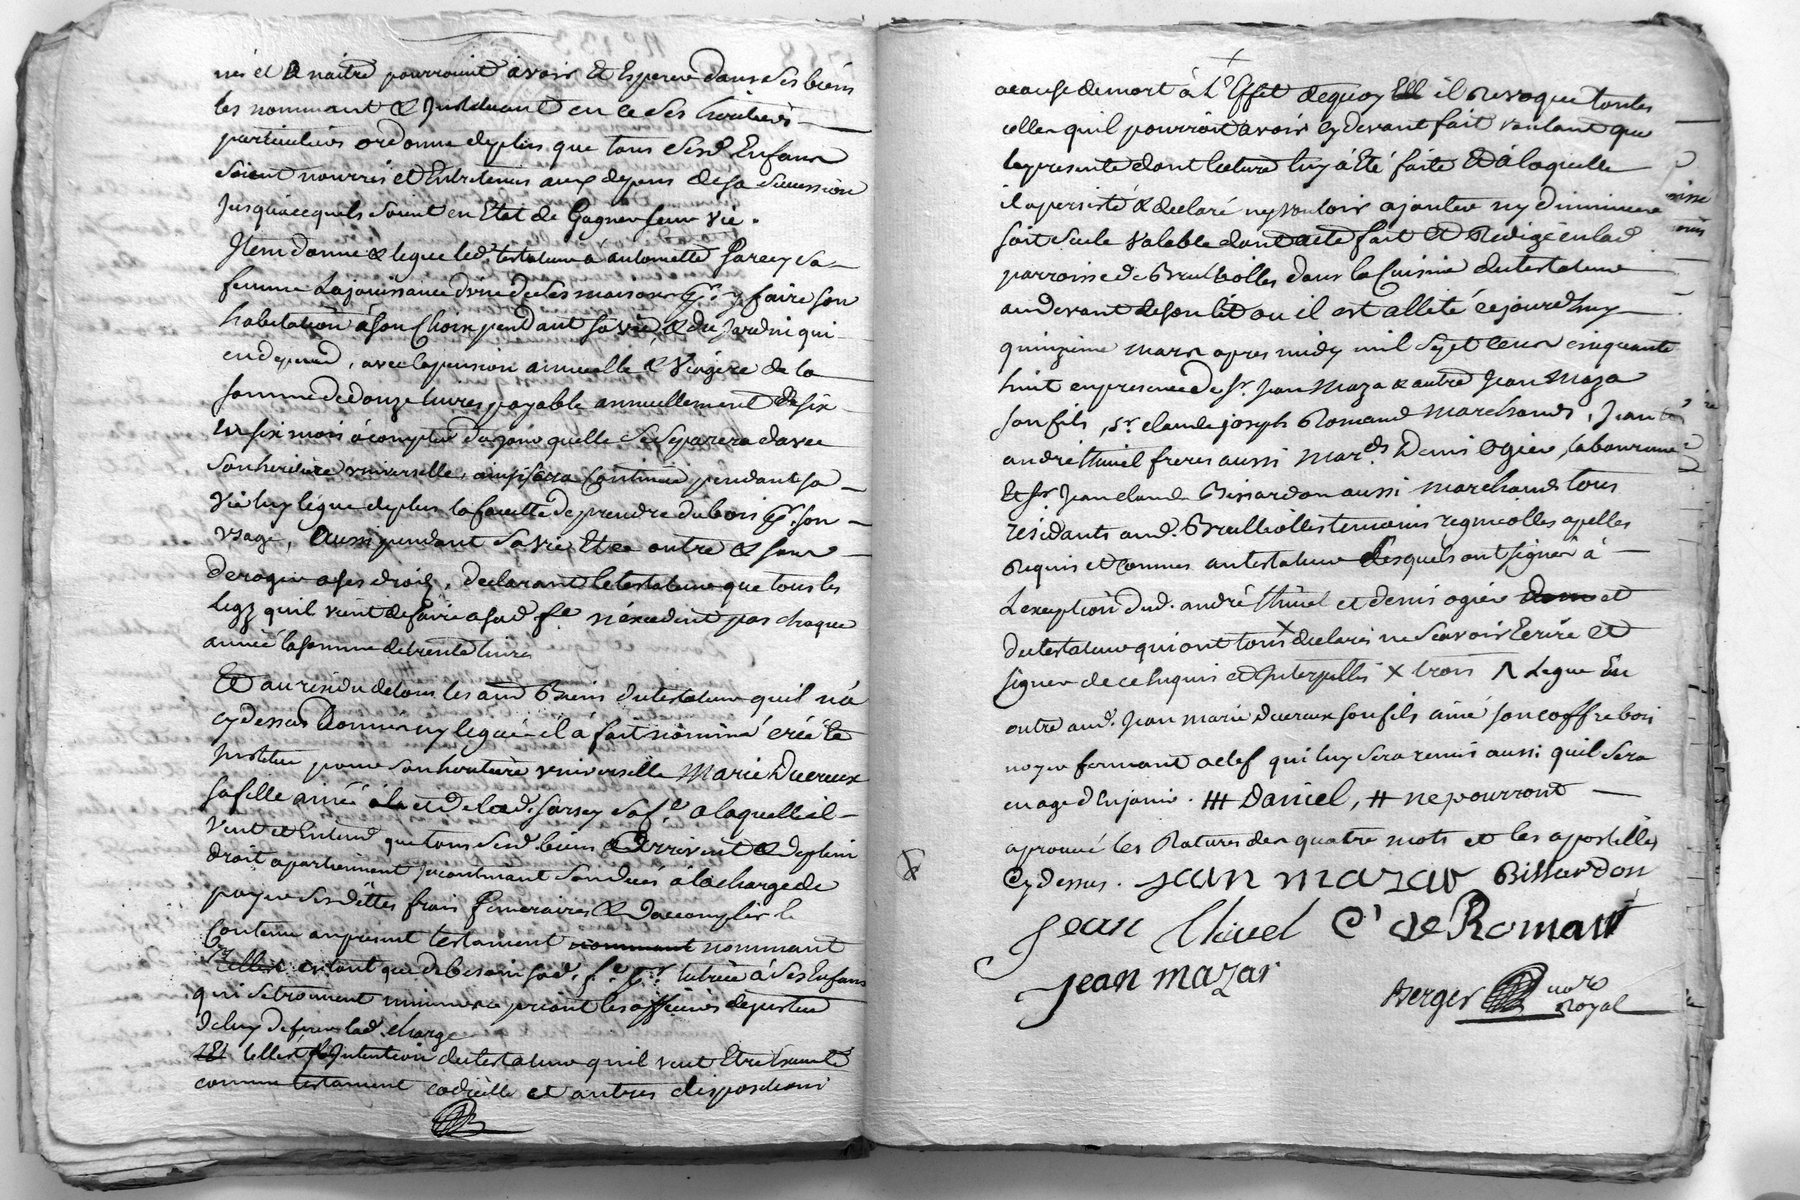 nés et A naitre pourroint avoir Et Esperer dans ses biens
les nommant & Instituant en ce ses heritiers
particuliers ordonne deplus que tous sesd. Enfans
soient nourris et Entretenus aux depens de sa succession
Jusquacequels soint en Etat de Gagner leur vie.
Item donne & legue led. testateur à antoinette Sarcey sa
femme La jouissance d'une de ses maisons pr. y faire son
habitation à son Choix pendant sa vie & du Jardin qui
en depend, avec la pension annuelle & Viagere de la
somme de douze livres payable annuellement de six
En six mois à compter du jour quelle se separera d'avec
son heritiere universelle, continuée pendant sa
vie luy légue deplus la faculté de prendre du bois pr. son
usage, aussi pendant sa vie Et ce outre & sans
deroger a ses droits, declarant le testateur que tous les
Legz quil vient de faire a sad. fe. n'éxcedent pas chaque
année la somme de trente livres
Et au residu de tous les aud Biens du testateur quil n'a
cy dessus donné ny legué il a fait nommé créé &
Institue pour son heritiere universelle Marie Ducreux
sa fille ainée à lad. Sarcey sa fe. a laquelle il
veut et Entend que tous sesd. biens arrivent & deplein
droit apartiennent incontinant son decés à la charge de
payer ses dettes frais funeraires & D'accomplir le
Contenu au present testament nommant nommant
en tant que de besoin sad. fe. pr. tutrice à ses Enfans
qui se trouvent mineurs priant les officiers de justice
de luy deferer lad. charge
telle est l'Intention du testateur qu'il veut Etre Executé
comme testament codicille et autres dispositions
acause de mort à L'Effet de quoy il Revoque toutes
celles quil pourroit avoir cy devant fait voulant que
la presente dont lecture luy à Eté faite Et à laquelle
il a persisté & declaré ny vouloir ajouter ny diminuer
soit seule valable dont acte fait Et Redigé en lad
parroisse de Brullioles dans la Cuisine du testateur
au devant de son lit ou il est allité cejourd'huy
quinzieme mars apres midy mil sept cens cinquante
huit en presence de Sr. Jean Maza & autre Jean Maza
son fils, Sr. claude joseph Romand Marchands, Jean &
andré thivel freres aussi Mards. Denis Ogier, laboureur
Et Sr. Jean claude Bissardon aussi marchand tous
résidants aud. Brullioles temoins apelles
Requis et connus au testateur Lesquels ont signer à
L'exeption dud. andré thivel et denis ogier et
du testateur qui ont tous X declarés ne sçavoir Ecrire Et
signer de ce Enquis et Interpellés X trois Λ Legue En
outre aud. Jean marie ducreux son fils ainé son coffre bois
noyer fermant a clef qui luy sera remis aussi quil sera
en age d'En jouir. ## Daniel, # ne pourront
aprouvé les Ratures des quatre mots et les apostilles
Cy dessus. jean mazar Bissardon
jean thivel C' de Romant
jean mazar
Berger nore
Royal